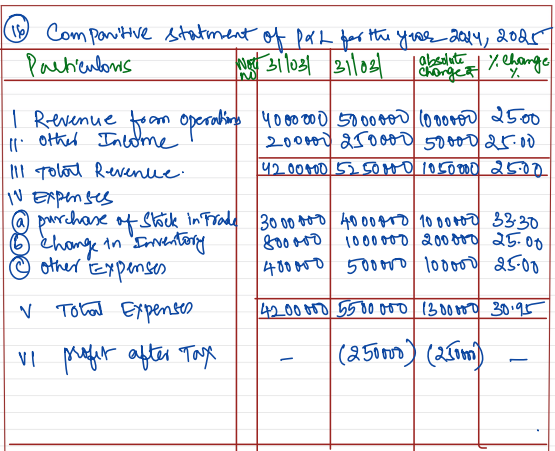 16 Comparitive statment of P&L for the year 2024, 2025
Particulars Not no 31/03/ 31/03/ absolute change ₹ % change %
I Revenue from operations 4000000 5000000 1000000 25.00
II. other Income 200000 250000 50000 25.00
III Total Revenue. 4200000 5250000 1050000 25.00
IV EXPENSES
a purchase of Stock in Trade 3000000 4000000 1000000 33.30
b change in Inventory 800000 1000000 200000 25.00
c other Expenses 400000 500000 100000 25.00
V Total Expenses 4200000 5500000 1300000 30.95
VI profit after Tax – (250000) (25000) –